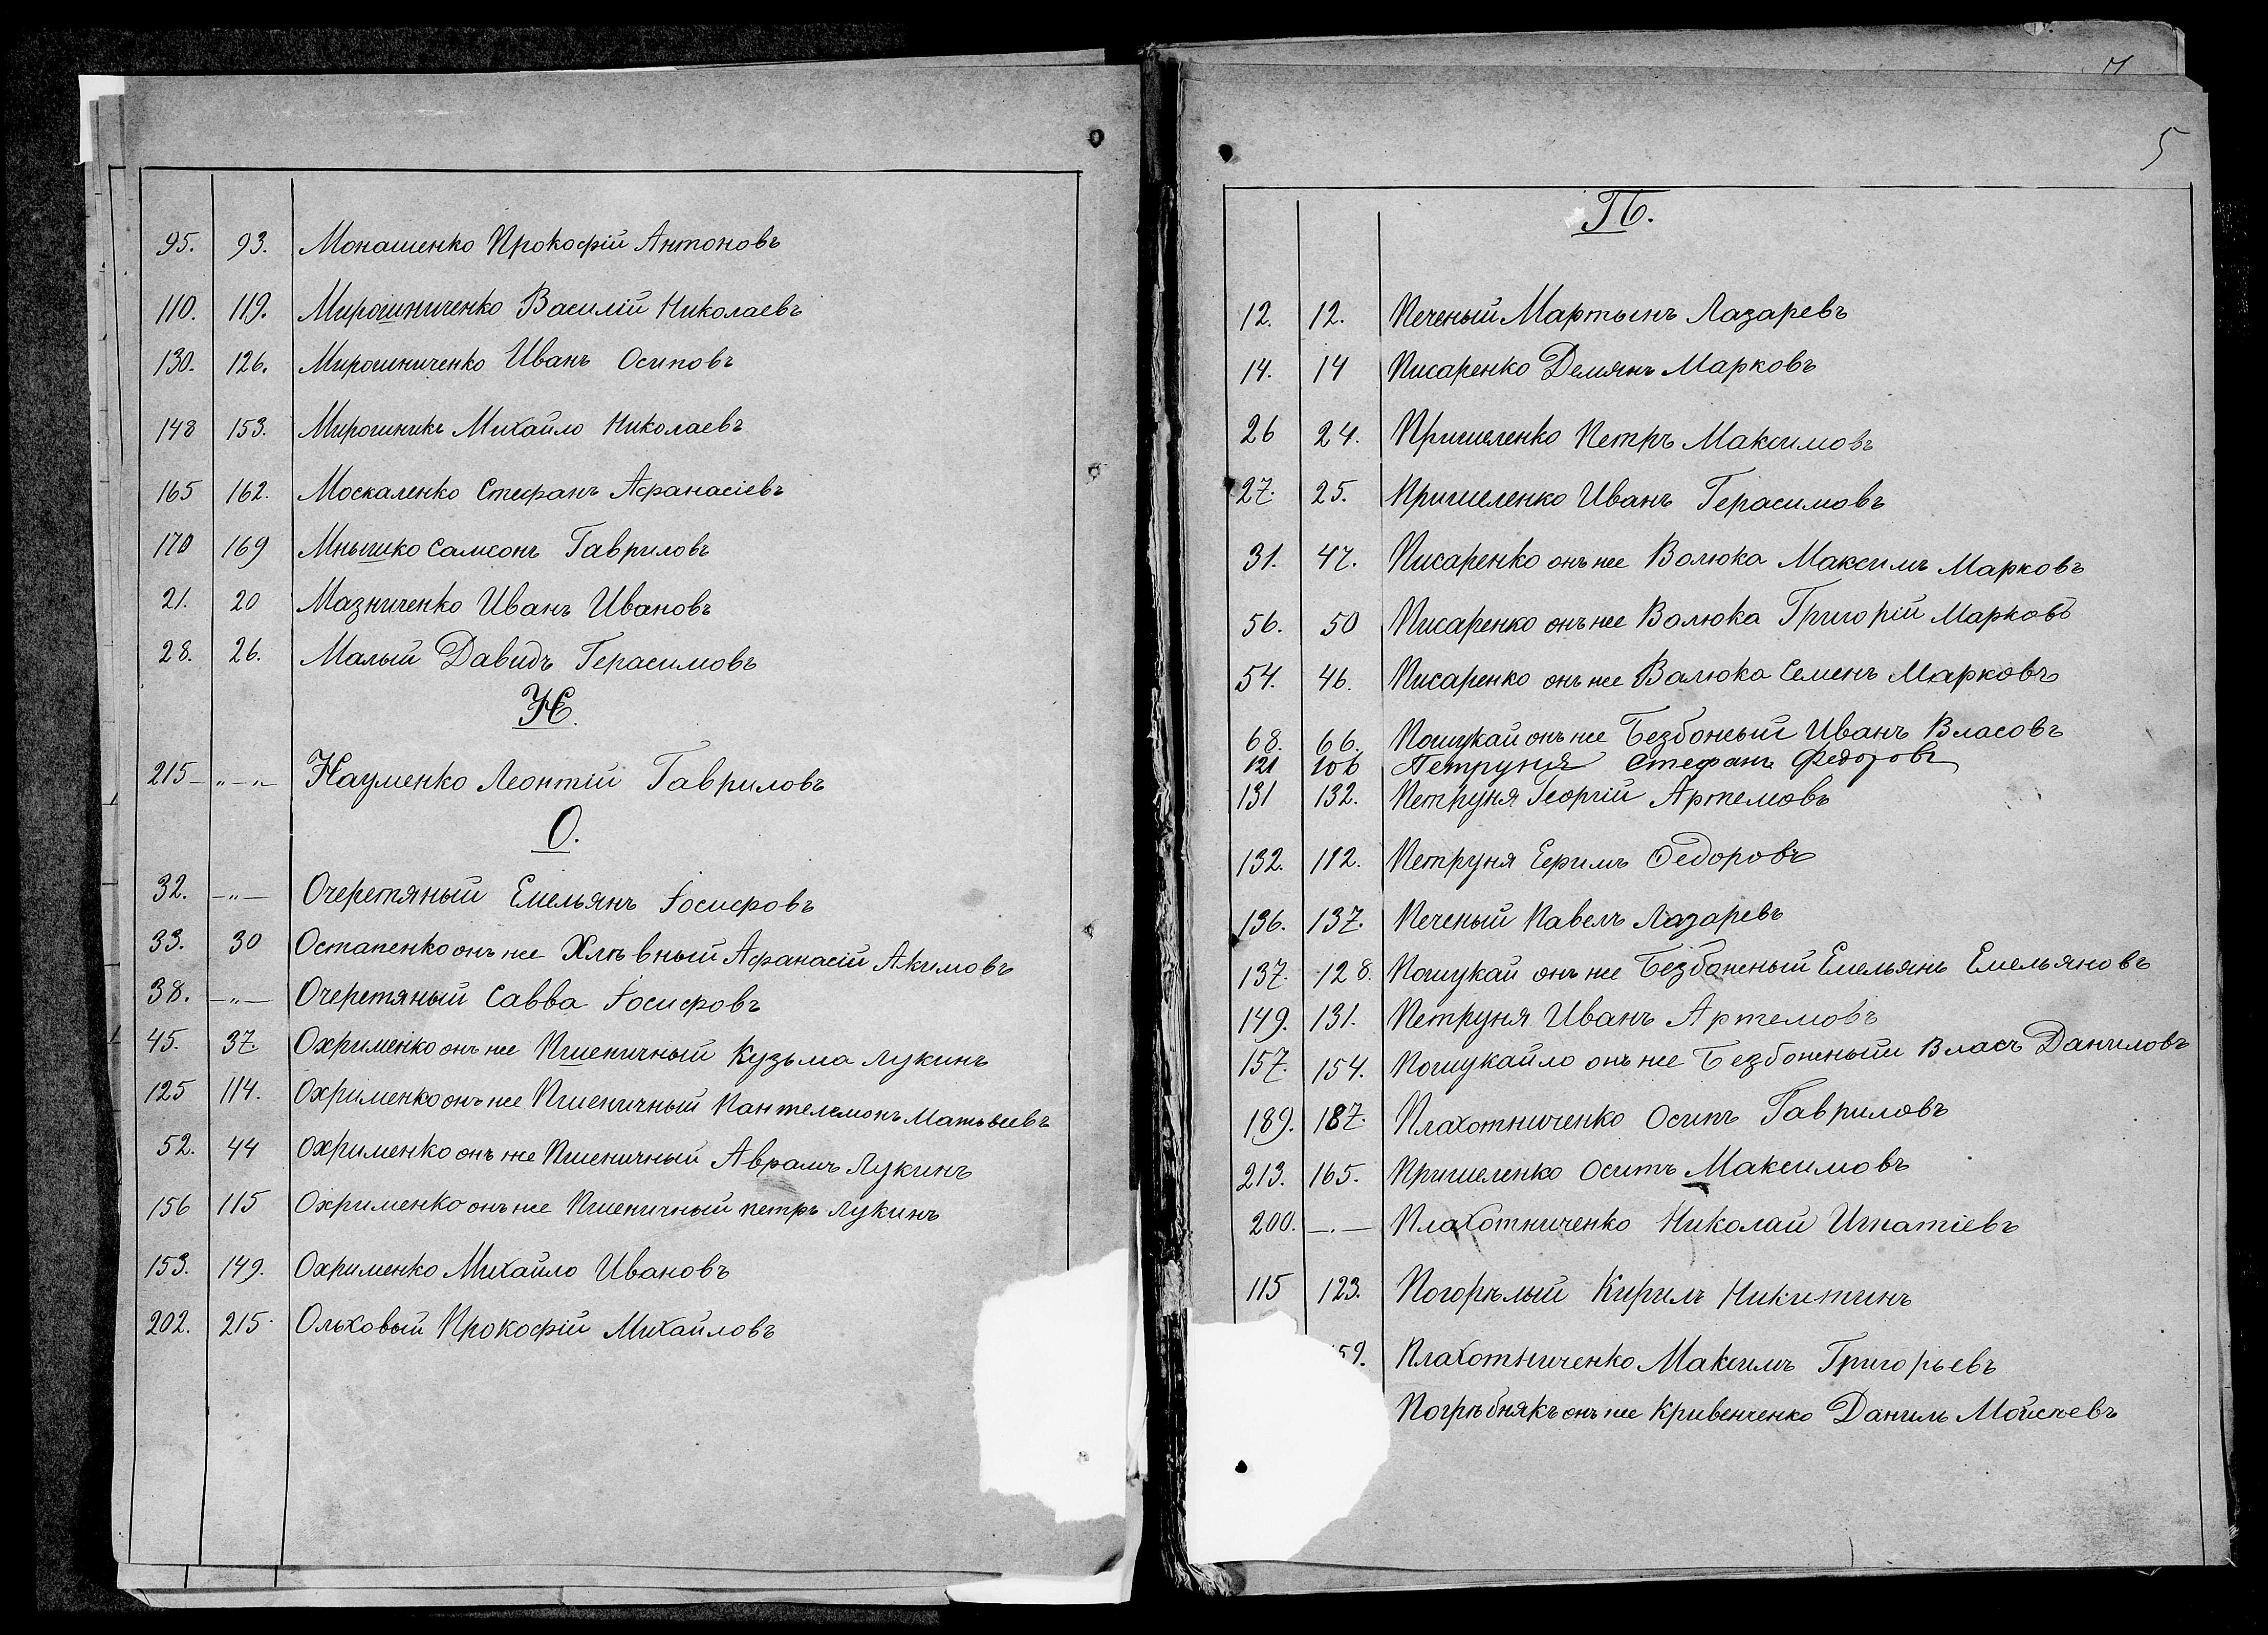 95. 93. Монашенко Прокофій Антоновъ
110. 119. Мирошниченко Василій Николаевъ
130. 126. Мирошниченко Иванъ Осиповъ
148 153. Мирошникъ Михайло Николаевъ
165 162. Москаленко Стефанъ Афанасіевъ
170 169 Мнышко Самсонъ Гавриловъ
21. 20 Мазниченко Иванъ Ивановъ
28. 26. Малый Давидъ Герасимовъ
Н.
215 - „ - „ - Науменко Леонтій Гавриловъ
О.
32. - „ - Очеретяный Емельянъ Іосифовъ
33. 30 Остапенко онъ же Хлѣвный Афанасій Акимовъ
38. - „ - Очеретяный Савва Іосифовъ
45. 37. Охрименко онъ же Пшеничный Кузьма Лукинъ
125 114. Охрименко онъ же Пшеничный Пантелемонъ Матвѣевъ
52. 44 Охрименко онъ же Пшеничный Аврамъ Лукинъ
156 115 Охрименко онъ же Пшеничный Петръ Лукинъ
153. 149. Охрименко Михайло Ивановъ
202. 215. Ольховый Прокофій Михайловъ
5
П.
12. 12. Печеный Мартынъ Лазаревъ
14. 14 Писаренко Демянъ Марковъ
26 24. Пришеленко Петръ Максимовъ
27. 25. Пришеленко Иванъ Герасимовъ
31. 47. Писаренко онъ же Волюка Максимъ Марковъ
56. 50 Писаренко онъ же Волюка Григорій Марковъ
54. 46. Писаренко онъ же Валюка Семенъ Марковъ
68. 66. Пошукай онъ же Безбожный Иванъ Власовъ
121 106 Петруня Стефанъ Федоровъ
131 132. Петруня Георгій Артемовъ
132. 112. Петруня Ефимъ Федоровъ
136. 137. Печеный Павелъ Лазаревъ
137. 128. Пошукай онъ же Безбожный Емельянъ Емельяновъ
149. 131. Петруня Иванъ Артемовъ
157. 154. Пошукайло онъ же Безбожный Власъ Даниловъ
189. 187. Плахотниченко Осипъ Гавриловъ
213. 165. Пришеленко Осипъ Максимовъ
200. - „ - Плахотниченко Николай Игнатіевъ
115 123. Погорѣлый Кирилъ Никитинъ
59. Плахотниченко Максимъ Григорьевъ
Погрѣбнякъ онъ же Кривенченко Данилъ Мойсѣевъ